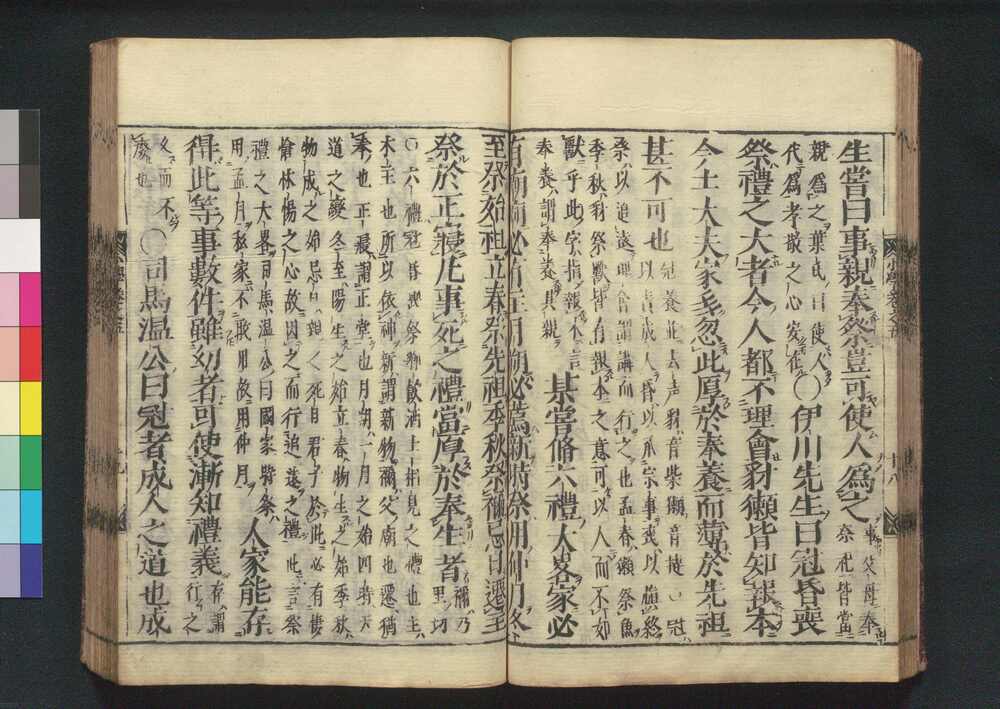 生嘗曰事親奉祭豈可使人爲之事父母奉
祭祀皆當
親爲之葉氏曰使人
代爲孝敬之心安在○伊川先生曰冠昏喪
祭禮之大者今人都不理會豺獺皆知報本
今士大夫家多忽此厚於奉養而薄於先祖
甚不可也冠養並去声豺音柴獺音撻○冠
以責成人昏以承宗事喪以愼終
祭以追遠理會謂講而行之也孟春獺祭魚
季秋豺祭獸皆有報本之意可以人而不如
獸乎此字指報本言
奉養謂奉養其親某嘗脩六禮大畧家必
有廟廟必有主月朔必薦新時祭用仲月冬
至祭始祖立春祭先祖季秋祭禰忌日遷主
祭於正寢凡事死之禮當厚於奉生者禰乃
里切
○六禮冠昏喪祭鄉飮酒士相見之禮也主
木主也所以依神新謂新物禰父廟也遷猶
奉也正寢謂正堂也月朔一月之始四時天
道之變冬至陽生之始立春物生之始季秋
物成之始忌日親之死日君子於此必有悽
愴怵惕之心故因之而行追遠之禮此言祭
禮之大畧司馬温公曰國家時祭
用孟月私家不敢用故用仲月人家能存
得此等事數件雖幼者可使漸知禮義存謂
行之
久而不
廢也○司馬温公曰冠者成人之道也成